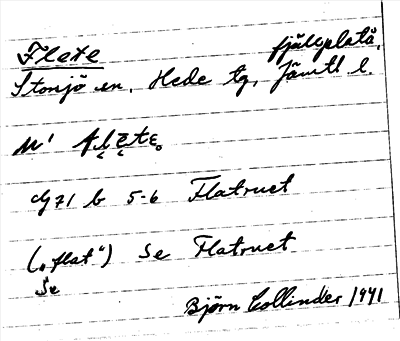 Flete fjällplatå,
Storsjö sn, Hede tg, Jämtl l.
flete
71 b 5-6 Flatruet
("flat") Se Flatruet
Se
Björn Collinder 1941